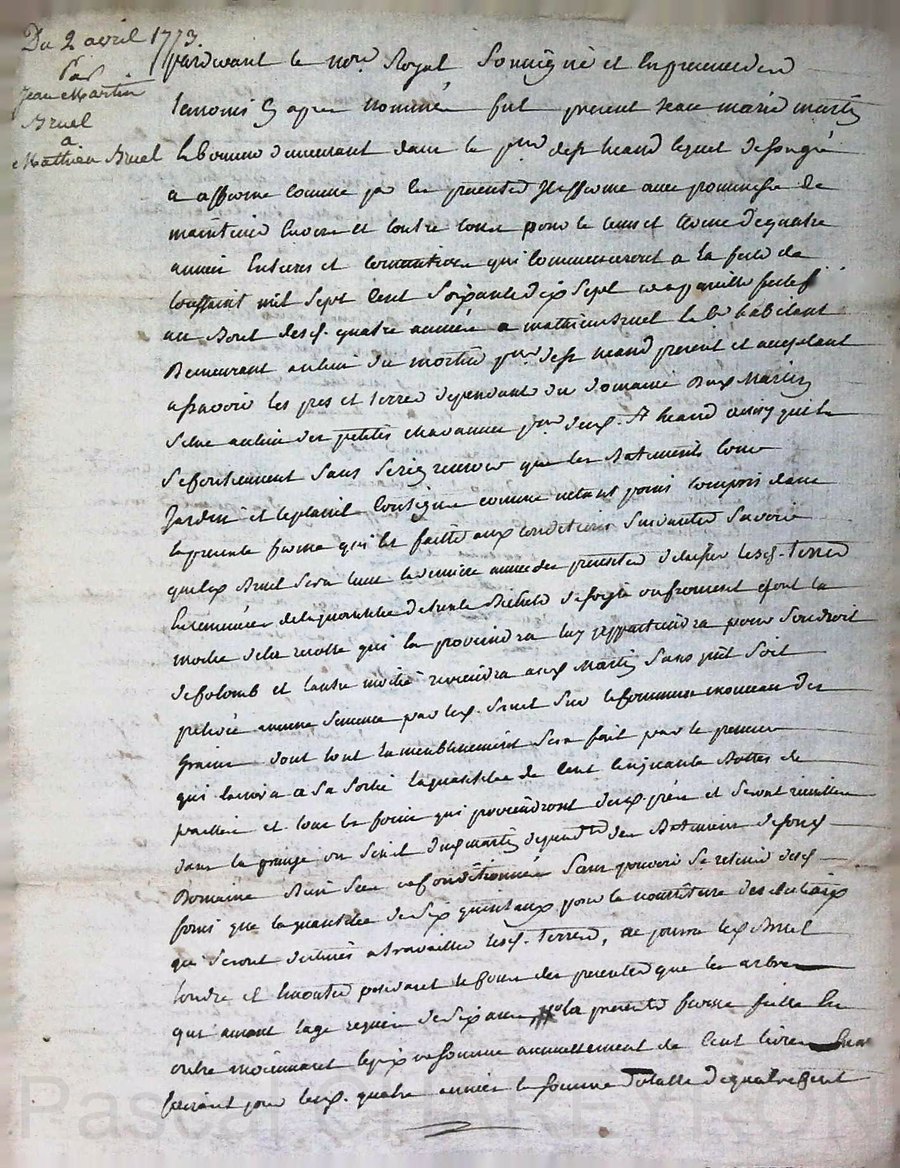 Du 2 avril 1773.
Par
Jean Martin
Bruel
a
Mathieu Bruel
pardevant le no.re Royal Soussigné et En presence des
temoins cy apres nommés fut present Jean marie martin
laboureur demeurant dans le lequel de son gré
a afferme comme par les presentes Il afferme avec promesse de
maintenir envers et contre tous pour le tems et terme de quatre
années Entieres et consecutives qui commenceront a la fete de
toussaint mil Sept Cent Soixante dix Sept et a pareille fete
au Bout desd. quatre années a mathieu Bruel labr habitant
Demeurant au lieu du present et acceptant
a Savoir les pres et terres dependant du domaine dud Martin
Situé au lieu des petites ainsy que le
Se Sans S'en rien reserver que les Batiments Cour
Jardin et comme n'etant point compris dans
la presente ferme qui est faitte aux conditions Suivantes Savoir
que led Bruel Sera tenu la derniere année des presentes de laisser lesd. Terres
Ensemencées de la quantité de de Seigle ou froment dont la
moitié de la recolte qui en proviendra luy appartiendra pour Son droit
de Colomb et l'autre moitié reviendra aud Martin Sans qu'il Soit
prelevé aucune Semence par led. Bruel Sur le commun monceau des
Grains dont tout Sera fait par le preneur
qui laissera a Sa Sortie la quantité de Cent Cinquante Bottes de
paille et tous les foins qui proviendront desd. prés et Seront
dans la grange ou dud martin dependant des Batiments de Son d.
Domaine Bien Sec et Conditionnés Sans pouvoir Se retenir desd.
foins que la quantité de Six quintaux pour la nourriture des Bestiaux
qui Seront destinés a travailler lesd. Terres, ne pourra led Bruel
tondre et Emonder pendant le cours des presentes que les arbres
qui auront l'age requis de Six ans la presente ferme faitte En
outre moienant le prix et Somme annuellement de Cent livres
faisant pour lesd. quatre années la Somme totalle de quatre Cent
Pascal CHAREYRON